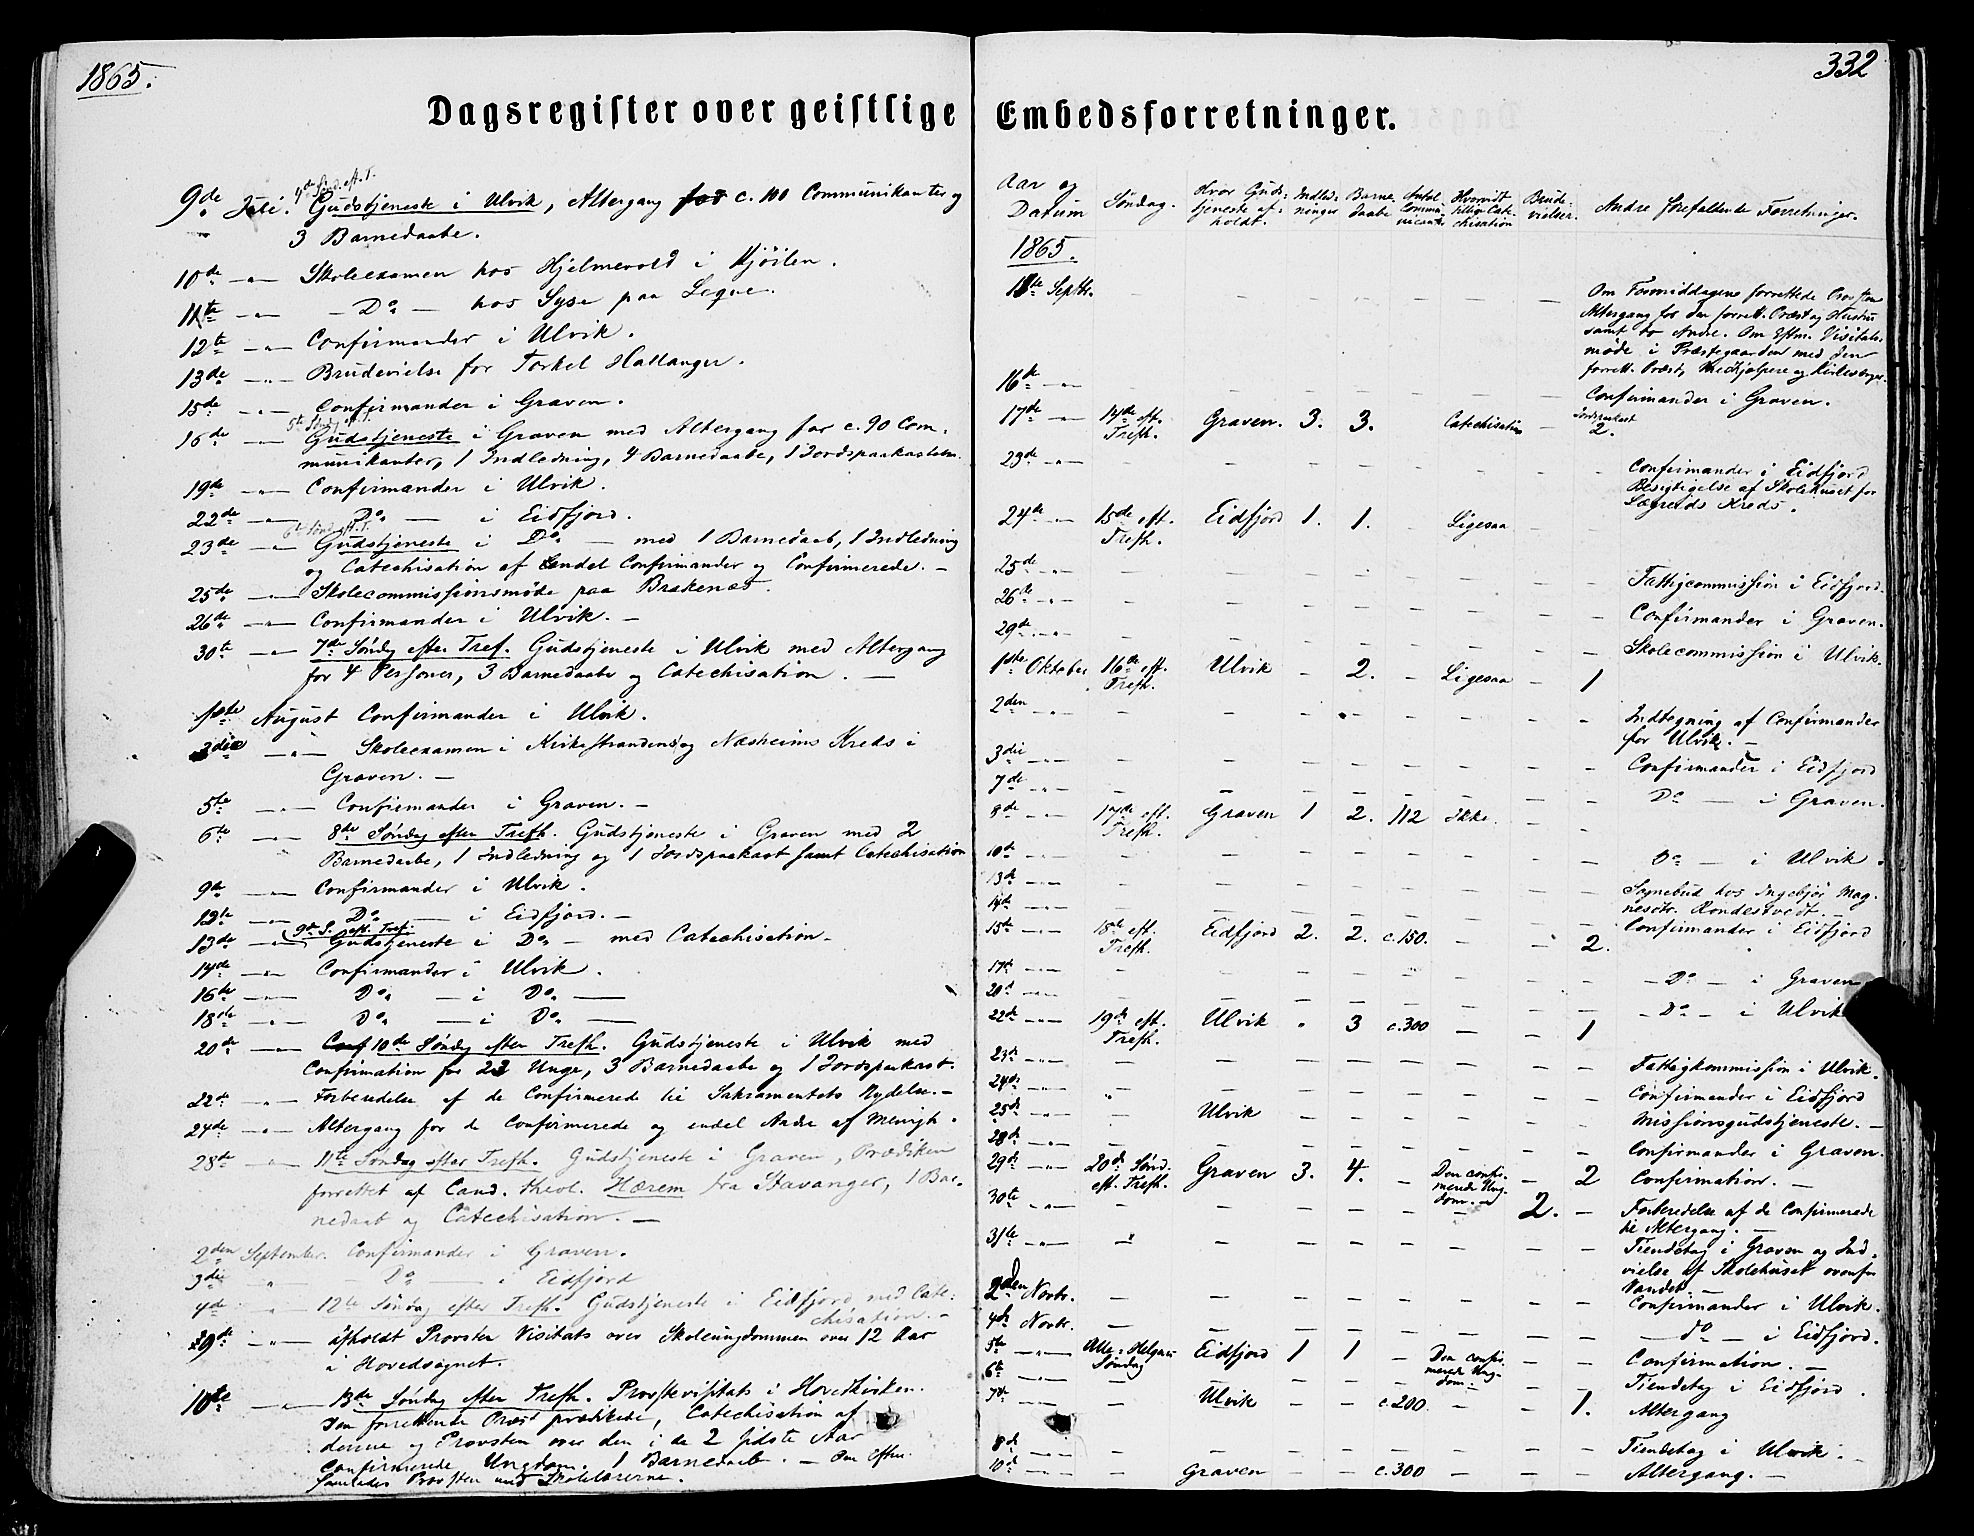 1865.
332
Dagsregister over geistlige Embedsforretninger.
9de Juli. 4de Sønd. eft. T. Gudstjeneste i Ulvik, Altergang for c. 100 Communikanter og
3 Barnedaabe.
10de —"— Skoleexamen hos Hjelmevold i
11te —"— — Do — hos Syse paa Legne.
12te —"— Confirmander i Ulvik.
13de —"— Brudevielse for Torkel Hallanger.
15de —"— Confirmander i Graven.
5te Sønd. eft. T.
16de —"— Gudstjeneste i Graven med Altergang for c. 90 Com-
munikanter, 1 Indledning, 4 Barnedaabe, 1 Jordspaakastelse.
19de —"— Confirmander i Ulvik.
22de —"— Do — i Eidfjord.
6te Sønd. eft. T.
23de —"— Gudstjeneste i Do — med 1 Barnedaab, 1 Indledning
og Catechisation af endel Confirmander og Confirmerede. —
25de —"— Skolecommissionsmøde paa Brakenæs.
26de —"— Confirmander i Ulvik. —
30te —"— 7de Søndag efter Tref. Gudstjeneste i Ulvik med Altergang
for 4 Personer, 3 Barnedaabe og Catechisation. —
1ste August Confirmander i Ulvik.
3die —"— Skoleexamen i Kirkestrandens og Næsheims Kreds i
Graven. —
5te —"— Confirmander i Graven. —
6te —"— 8de Søndag efter Trefh. Gudstjeneste i Graven med 2
Barnedaabe, 1 Indledning og 1 Jordspaakast samt Catechisation
9de —"— Confirmander i Ulvik.
12te —"— Do — i Eidfjord. —
9de S. eft. Tref.
13de —"— Gudstjeneste i Do — med Catechisation. —
14de —"— Confirmander i Ulvik.
16te —"— Do — i Do —
18de —"— Do — i Do —
20de —"— Conf 10de Søndag efter Trefh. Gudstjeneste i Ulvik med
Confirmation for 22 Unge, 3 Barnedaabe og 1 Jordspaakast.
22de —"— Forberedelse af de Confirmerede til Sakramentets Nydelse. —
24de —"— Altergang for de Confirmerede og endel Andre af Menigh.
28de —"— 11te Søndag efter Trefh. Gudstjeneste i Graven, Prædiken
forrettet af Cand. theol. Hærem fra Stavanger, 1 Bar-
nedaab og Catechisation. —
2den September. Confirmander i Graven.
3die " — Do — i Eidfjord
4de " 12te Søndag efter Trefh. Gudstjeneste i Eidfjord med Cate-
chisation. —
9de —"— afholdt Provsten Visitats over Skoleungdommen over 12 Aar
i Hovedsognet.
10de —"— 13de Søndag efter Trefh. Provstevisitats i Hovedkirken.
Den forrettende Præst prædikede, Catechisation af
denne og Provsten over den i de 2 sidste Aar
Confirmerede Ungdom. 1 Barnedaab. — Om Efter.
samledes Provsten med Skolelærerne.
Aar og Datum | Søndag. | Hvor Gudstjeneste afholdt. | Indledninger | Barnedaabe | Antal Communicanter | Hvorvidt tillige Catechisation | Brudevielser. | Andre forefaldende Forretninger.
1865.
11te Septbr. — — — — — — — Om Formiddagen forrettede Provsten
Altergang for den forrett. Præst og Hustru
samt to Andre. Om Eftm. Visitats-
møde i Præstegaarden med den
forrett. Præst, Medhjælpere og Kirkesanger.
16de —"— — — — — — — — Confirmander i Graven.
17de —"— 14de eft. Trefh. Graven. 3. 3. Catechisation — Jordspaakast 2.
23de —"— — — — — — — — Confirmander i Eidfjord
Besigtigelse af Skolehuset for
Lægreids Kreds.
24de —"— 15de eft. Trefh. Eidfjord 1. 1. — Ligesaa —
25de —"— — — — — — — — Fattigcommission i Eidfjord.
26te —"— — — — — — — — Confirmander i Graven.
29de —"— — — — — — — — Skolecommission i Ulvik.
1ste Oktober 16de eft. Trefh. Ulvik — 2. — Ligesaa — 1
2den —"— — — — — — — — Indtegning af Confirmander
for Ulvik. —
3die —"— — — — — — — — Confirmander i Eidfjord
7de —"— — — — — — — — Do — i Graven.
8de —"— 17de eft. Trefh. Graven 1 2. 112 ikke. — —
10de —"— — — — — — — — Do — i Ulvik.
13de —"— — — — — — — — Sognebud hos Ingebjør Mag-
nesdtr. Rondestvedt. —
14de —"— — — — — — — — Confirmander i Eidfjord
15de —"— 18de eft. Trefh. Eidfjord 2. 2. c. 150. — — 2.
17de —"— — — — — — — — — Do — i Graven
20de —"— — — — — — — — — Do — i Ulvik
22de —"— 19de eft. Trefh. Ulvik " 3 c. 300 — — 1
23de —"— — — — — — — — Fattigkommission i Ulvik.
24de —"— — — — — — — — Confirmander i Eidfjord
25de —"— — Ulvik — — — — — — Missionsgudstjeneste. —
28de —"— — — — — — — — Confirmander i Graven.
29de —"— 20de Sønd. eft. Trefh. Graven 3. 4. — Den confirmerede Ungdom. — — 2 Confirmation. —
30te —"— — — — — — — 2. — Forberedelse af de Confirmerede
til Altergang. —
31te —"— " — — — — — — — Tiendetag i Graven og Ind-
vielse af Skolehuset ovenfor
Vandet. —
2den Novbr. — — — — — — — Confirmander i Ulvik.
4de Novbr. — — — — — — — — do — i Eidfjord.
5te —"— Alle Helgens Søndag Eidfjord 1 1 — Den confirmerede Ungdom. — — — Confirmation. —
6te —"— — — — — — — — Tiendetag i Eidfjord.
7de —"— — Ulvik — — c. 200. — — 1. Altergang
8de —"— — — — — — — — Tiendetag i Ulvik. —
10de —"— — Graven — — c. 300 — — — Altergang. —